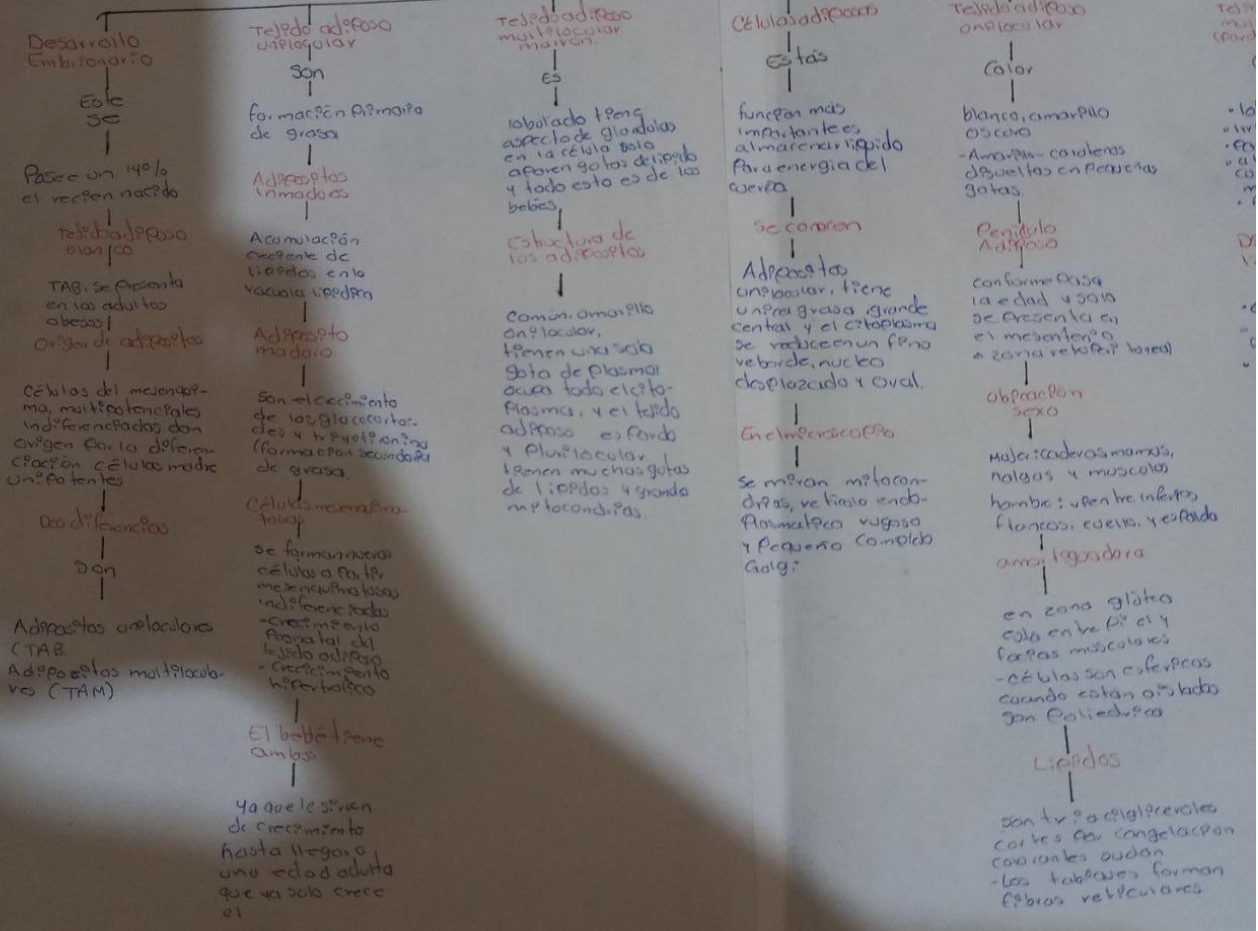 Desarrollo
Embrionario
Este
se
Posee un 14%
el recien nacido
Tejido adiposo
blanco
TAB. se presenta
en los adultos
obesos
Origen de adipositos
Células del mesenqui-
ma, multipotenciales
indiferenciadas dan
origen por la diferen-
ciación células madre
unipotentes
Dos diferencias
son
Adipositos uniloculares
(TAB
Adipozitos multilocula-
res (TAM)
Tejido adiposo
unilogular
son
formación primaria
de grasa
Adipositos
inmaduros
Acumulación
creciente de
lipidos en la
vacuola lipidica
Adiposito
maduro
son el crecimiento
de los glucocortoi-
des y triyotironina
(formacion secundaria
de grasa
Células mesenquima-
tosas
se forman nuevas
células a partir
mesenquimatosas
indiferenciadas
-crecimiento
posnatal del
tejido adiposo
- crecicimiento
hipertrofico
El bebé tiene
ambos
ya que le sirven
de crecimiento
hasta llegar a
una edad adulta
que ya solo crece
el
Tejido adiposo
multilocular
marron
Es
lobulado tiene
aspecto de glandulas
en la célula solo
aparen gotas de lipido
y todo esto es de los
bebés
Estructura de
los adipositos
común, amarillo
unilocular,
tienen una sola
gota de plasma
ocupa todo el cito-
plasma, y el tejido
adiposo es pardo
y plurilocular
tienen muchas gotas
de lipidos y grande
mitocondrias.
Células adiposas
Estás
función más
importante es
almacenar liquido
para energia del
cuerpo
se conocen
Adipositos
tiene
grasa grande
central y el citoplasma
se reduce en un fino
reborde, nucleo
desplazado y oval.
En el microscopio
se miran mitocon-
drias, reticulo endo-
plasmatico rugoso
y pequeño complejo
Golgi
Tejido adiposo
unilocular
Color
blanco, amarillo
oscuro
-Amarillo- carotenos
disueltas en pequeñas
gotas.
Penidulo
Adiposo
conforme pasa
la edad y solo
se presenta en
el mesenterio
o zona
ubicacion
sexo
Mujer: caderas mamas,
nalgas y musculos
hombre: vientre inferior
flancos, cuello, y espalda
amortiguadora
en zona glútea
esta entre piel y
facias musculares
-células son esfericas
cuando estan aisladas
son poliedrica
Lipidos
son triacilgliceroles
cortes por congelacion
colorantes sudan
-Los tabiques forman
fibras reticulares.